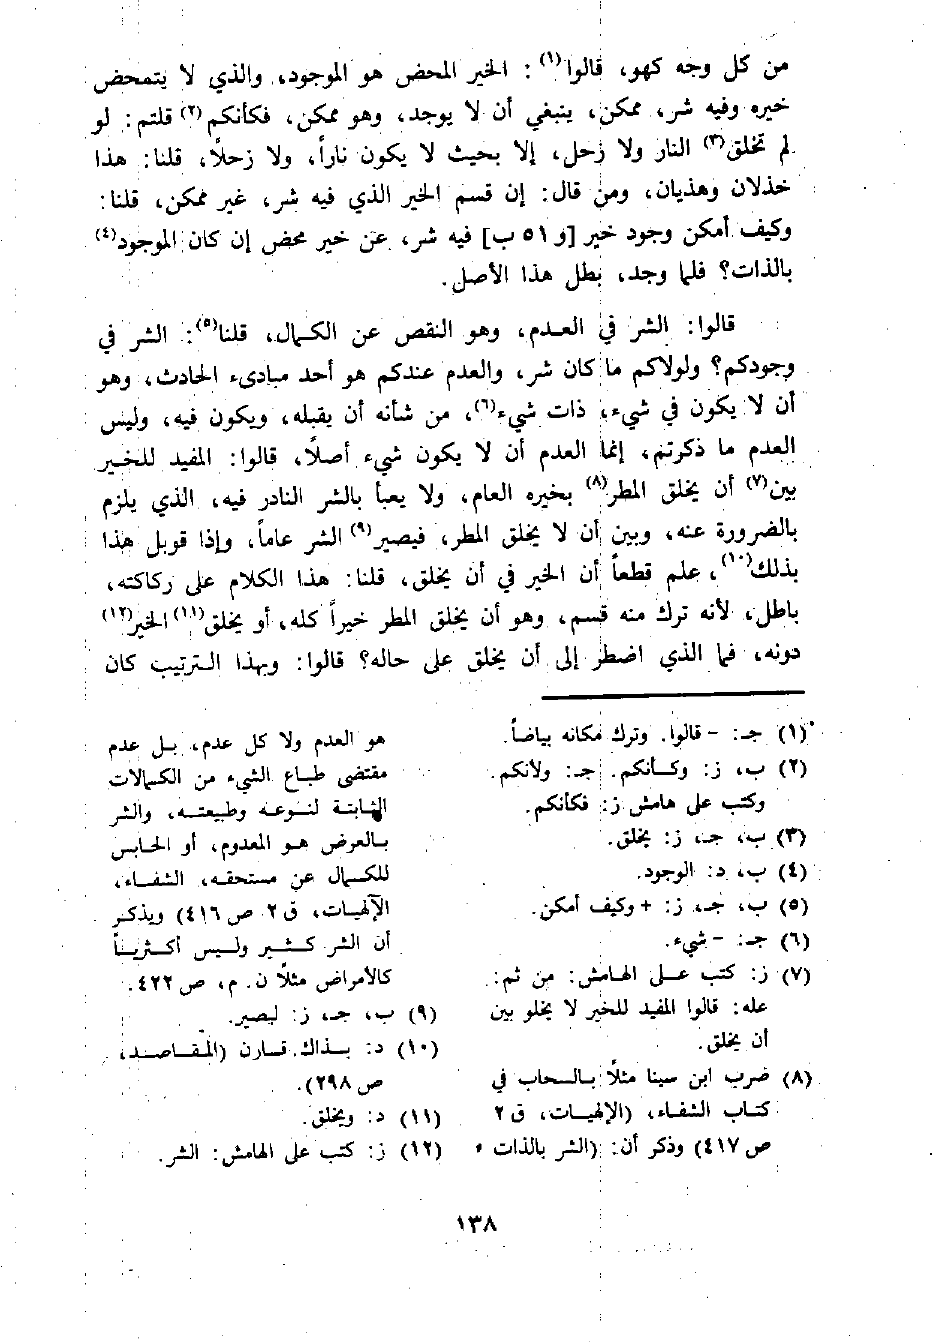 من كل وجه كهو، قالوا(١): الخير المحض هو الموجود، والذي لا يتمحض
خيره وفيه شر، ممكن، ينبغي أن لا يوجد، وهو ممكن، فكأنكم(٢) قلتم: لو
لم تخلق(٣) النار ولا زحل، إلا بحيث لا يكون ناراً، ولا زحلاً، قلنا: هذا
خذلان وهذيان، ومن قال: إن قسم الخير الذي فيه شر، غير ممكن، قلنا:
وكيف أمكن وجود خير [و ٥١ ب] فيه شر، عن خير محض إن كان الموجود(٤)
بالذات؟ فلما وجد، بطل هذا الأصل.
قالوا: الشر في العدم، وهو النقص عن الكمال، قلنا(٥): الشر في
وجودكم؟ ولولاكم ما كان شر، والعدم عندكم هو أحد مبادىء الحادث، وهو
أن لا يكون في شيء، ذات شيء(٦)، من شأنه أن يقبله، ويكون فيه، وليس
العدم ما ذكرتم، إنما العدم أن لا يكون شيء أصلاً، قالوا: المفيد للخير
بين(٧) أن يخلق المطر(٨) بخيره العام، ولا يعبأ بالشر النادر فيه، الذي يلزم
بالضرورة عنه، وبين أن لا يخلق المطر، فيصير(٩) الشر عاماً، وإذا قوبل هذا
بذلك(١٠)، علم قطعاً أن الخير في أن يخلق، قلنا: هذا الكلام على ركاكته،
باطل، لأنه ترك منه قسم، وهو أن يخلق المطر خيراً كله، أو يخلق(١١) الخير(١٢)
دونه، فما الذي اضطر إلى أن يخلق على حاله؟ قالوا: وبهذا الترتيب كان
(١) جـ: - قالوا. وترك مكانه بياضاً.
(٢) ب، ز: وكأنكم. جـ: ولانكم.
وكتب على هامش ز: فكأنكم.
(٣) ب، جـ، ز: يخلق.
(٤) ب، د: الوجود.
(٥) ب، جـ، ز: + وكيف أمكن.
(٦) جـ: - شيء.
(٧) ز: كتب على الهامش: من ثم:
عله: قالوا المفيد للخير لا يخلو بين
أن يخلق.
(٨) ضرب ابن سينا مثلاً بالسحاب في
كتاب الشفاء، (الإلهيات، ق ٢
ص ٤١٧) وذكر أن: (الشر بالذات
هو العدم ولا كل عدم، بل عدم
مقتضى طباع الشيء من الكمالات
الثابتة لنوعه وطبيعته، والشر
بالعرض هو المعدوم، أو الحابس
للكمال عن مستحقه، الشفاء،
الآلهيات، ق ٢ ص ٤١٦) ويذكر
أن الشر كثير وليس أكثرياً
كالامراض مثلاً ن. م، ص ٤٢٢.
(٩) ب، جـ، ز: ليصير.
(١٠) د: بذاك. قارن (المقاصد،
ص ٢٩٨).
(١١) د: ويخلق.
(١٢) ز: كتب على الهامش: الشر.
١٣٨